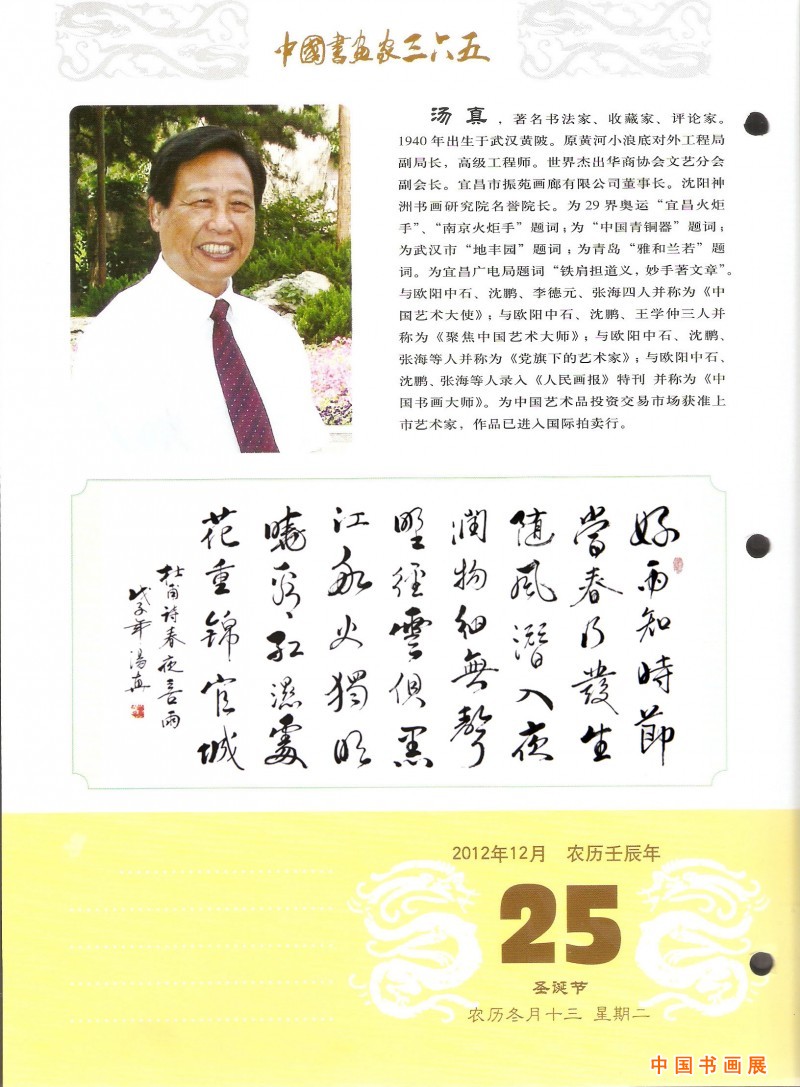 中國書畫家三六五
汤真，著名书法家、收藏家、评论家。
1940年出生于武汉黄陂。原黄河小浪底对外工程局
副局长，高级工程师。世界杰出华商协会文艺分会
副会长。宜昌市振苑画廊有限公司董事长。沈阳神
洲书画研究院名誉院长。为29界奥运“宜昌火炬
手”、“南京火炬手”题词；为“中国青铜器”题词；
为武汉市“地丰园”题词；为青岛“雅和兰若”题
词。为宜昌广电局题词“铁肩担道义，妙手著文章”。
与欧阳中石、沈鹏、李德元、张海四人并称为《中
国艺术大使》；与欧阳中石、沈鹏、王学仲三人并
称为《聚焦中国艺术大师》；与欧阳中石、沈鹏、
张海等人并称为《党旗下的艺术家》；与欧阳中石、
沈鹏、张海等人录入《人民画报》特刊 并称为《中
国书画大师》。为中国艺术品投资交易市场获准上
市艺术家，作品已进入国际拍卖行。
好雨知時節
當春乃發生
随風潛入夜
潤物細無聲
野徑雲俱黑
江船火獨明
曉看紅濕處
花重錦官城
杜甫诗春夜喜雨
戊子年湯真
2012年12月 农历壬辰年
25
圣诞节
农历冬月十三 星期二
中国书画展